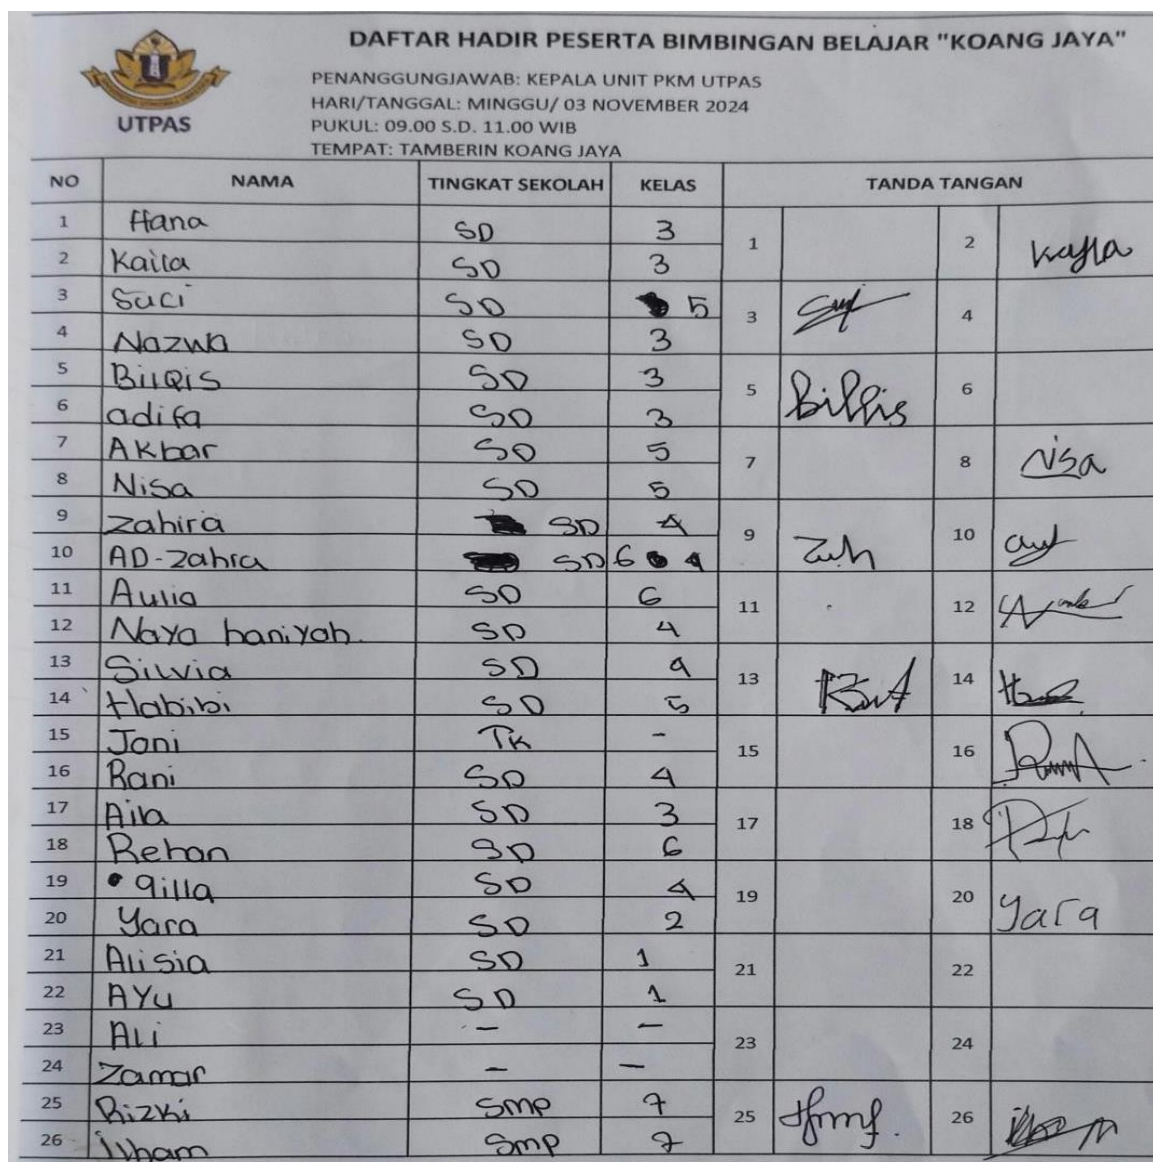 DAFTAR HADIR PESERTA BIMBINGAN BELAJAR "KOANG JAYA"
UTPAS
PENANGGUNGJAWAB: KEPALA UNIT PKM UTPAS
HARI/TANGGAL: MINGGU/ 03 NOVEMBER 2024
PUKUL: 09.00 S.D. 11.00 WIB
TEMPAT: TAMBERIN KOANG JAYA
NO NAMA TINGKAT SEKOLAH KELAS TANDA TANGAN
1 Hana SD 3 1 2
2 Kaila SD 3
3 Suci SD 5 3 4
4 Nazwa SD 3
5 BilQis SD 3 5 6
6 adifa SD 3
7 AKbar SD 5 7 8 Nisa
8 Nisa SD 5
9 Zahira SD 4 9 10
10 AD-Zahra SD 6 4
11 Aulia SD 6 11 12
12 Naya haniyah. SD 4
13 Silvia SD 4 13 14
14 Habibi SD 5
15 Jani TK - 15 16
16 Rani SD 4
17 Aila SD 3 17 18
18 Rehan SD 6
19 qilla SD 4 19 20 Yara
20 Yara SD 2
21 Alisia SD 1 21 22
22 AYu SD 1
23 Ali - - 23 24
24 Zamar - -
25 Rizki SMP 7 25 26
26 ilham SMP 7